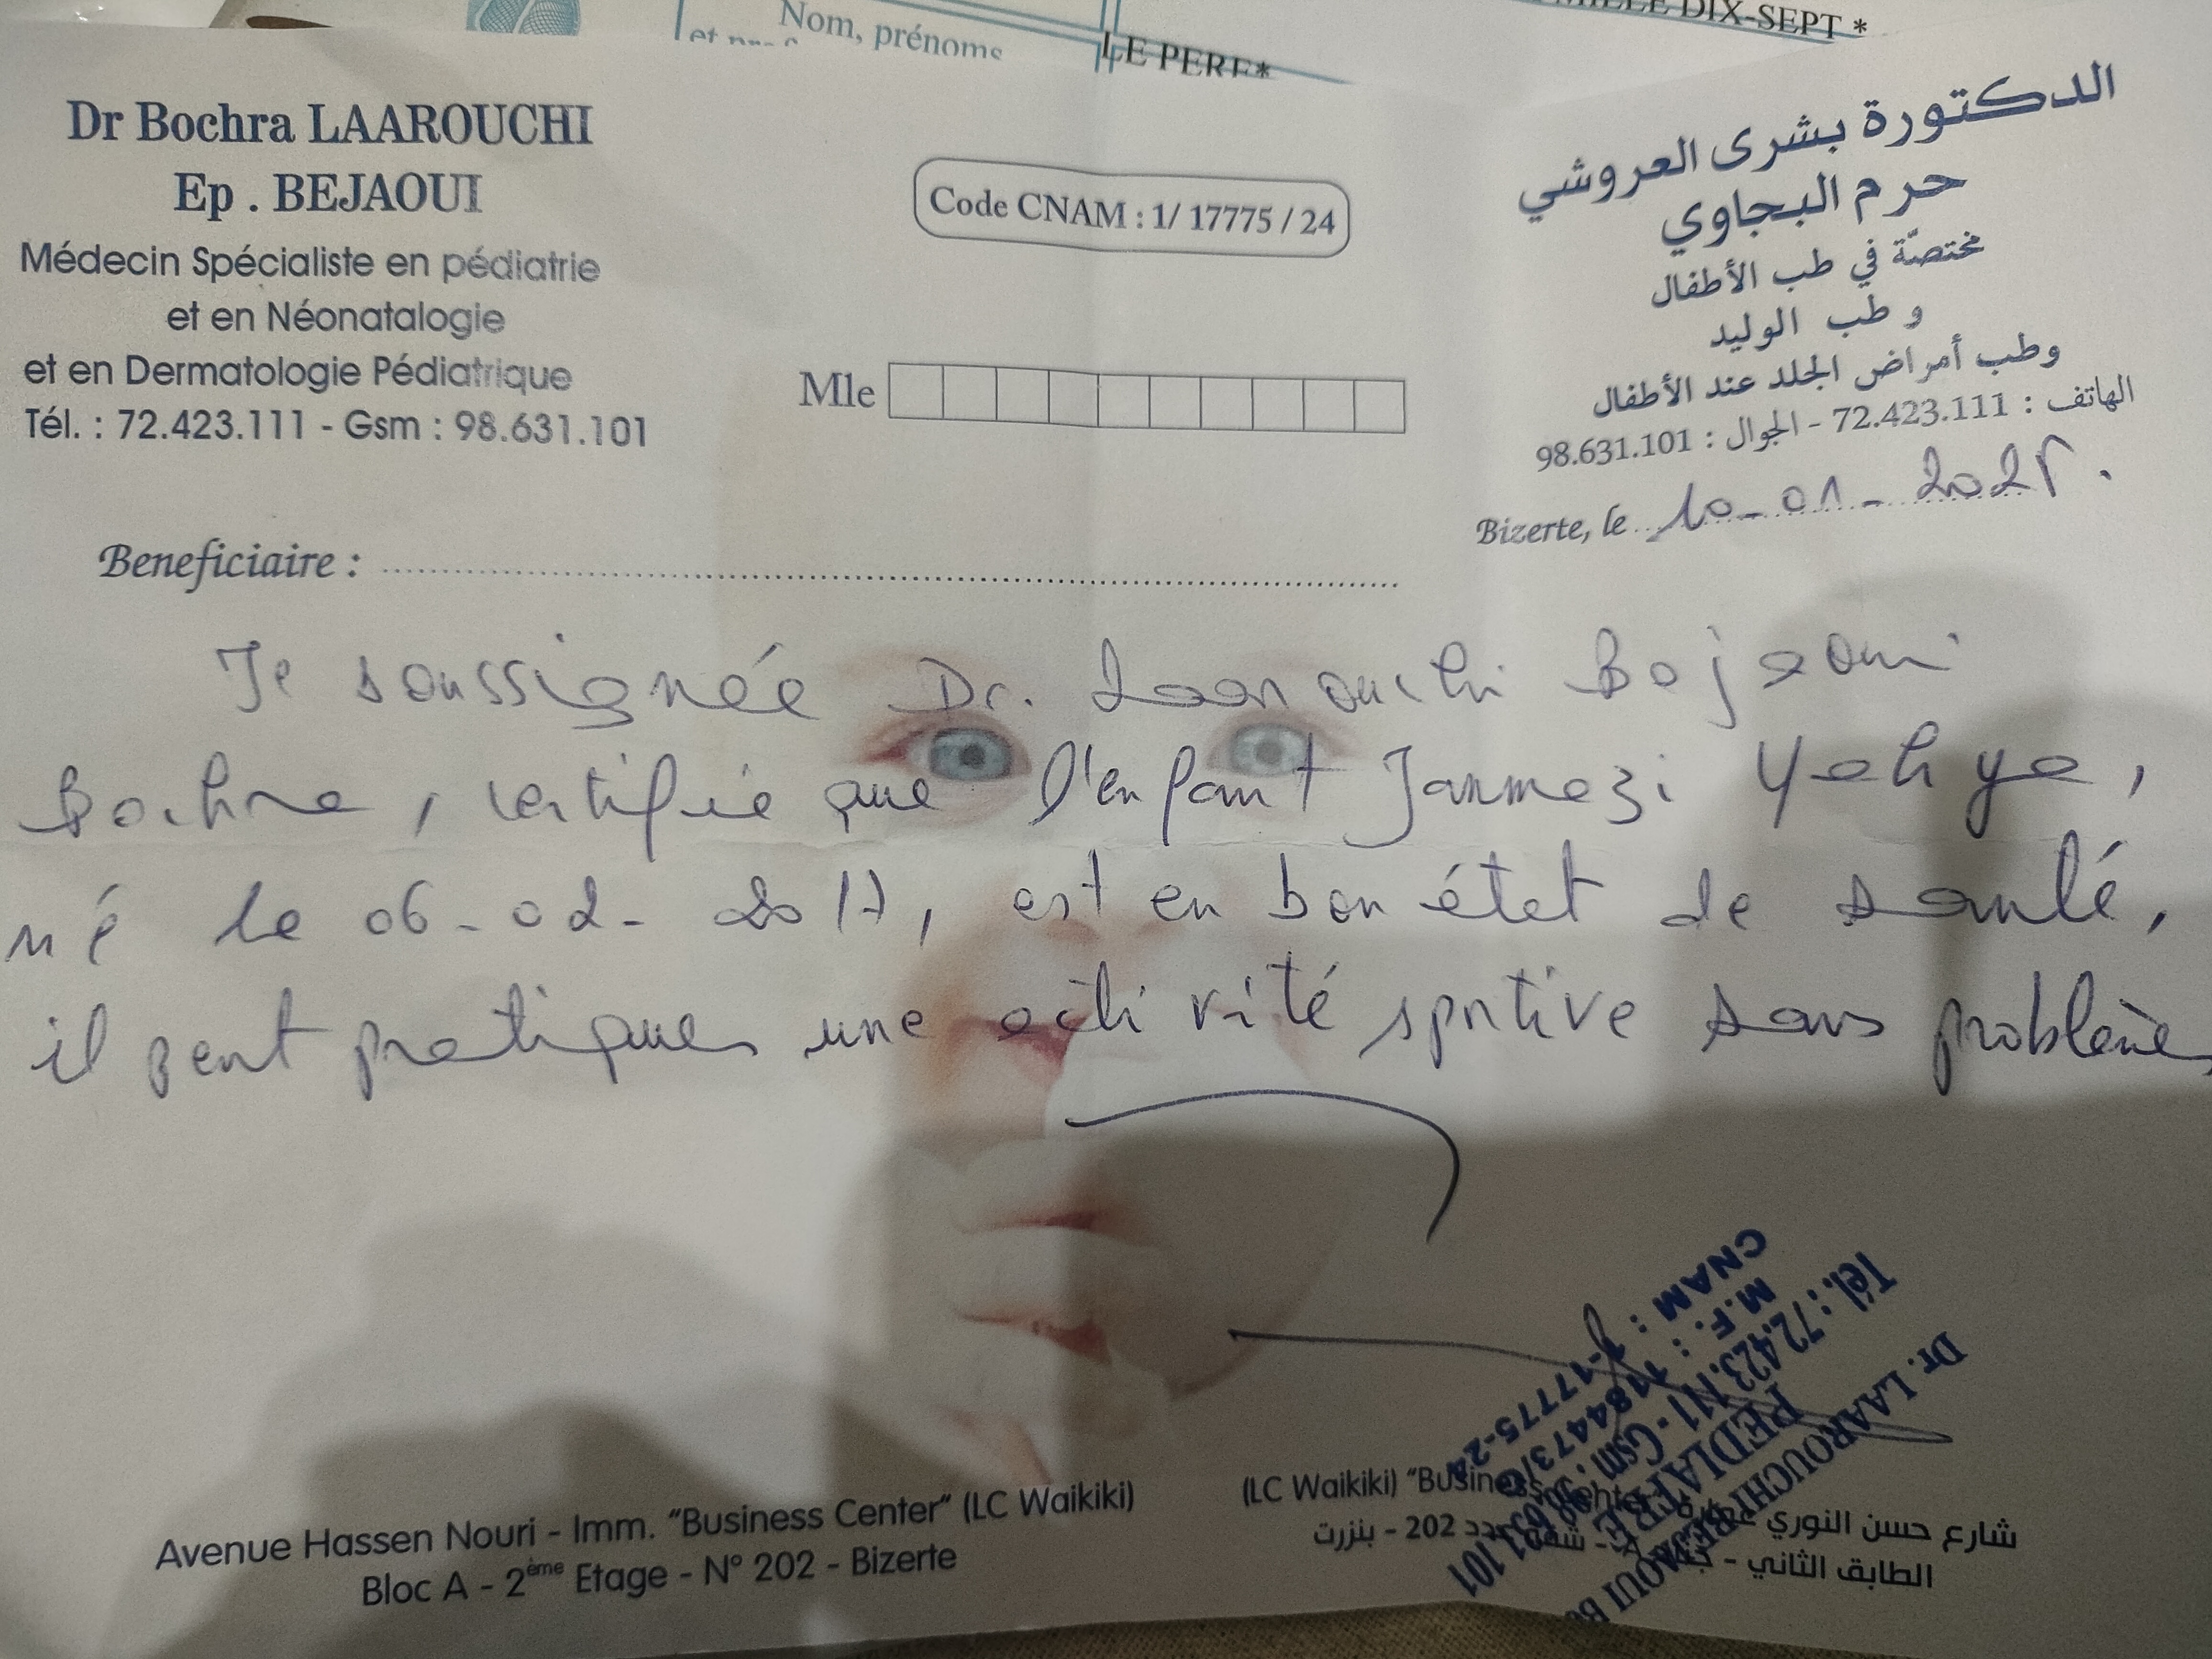 Nom, prénoms
LE PERE*
MILLE DIX-SEPT *
Dr Bochra LAAROUCHI
Ep . BEJAOUI
Médecin Spécialiste en pédiatrie
et en Néonatalogie
et en Dermatologie Pédiatrique
Tél. : 72.423.111 - Gsm : 98.631.101
Code CNAM : 1/ 17775 / 24
Mle
الدكتورة بشرى العروشي
حرم البجاوي
مختصّة في طب الأطفال
و طب الوليد
وطب أمراض الجلد عند الأطفال
الهاتف : 72.423.111 - الجوال : 98.631.101
Bizerte, le 10-01-2025.
Beneficiaire :
Je soussignée Dr. Laarouchi Bejaoui
Bochra, certifie que l'enfant Jarmezi Yahya,
né le 06-02-2017, est en bon état de santé,
il peut pratiquer une activité sportive sans problème
Dr. LAAROUCHI BEJAOUI
PEDIATRE
Tél. : 72.423.111 - Gsm : 98.631.101
M.F. :
CNAM : 1-17775-24
Avenue Hassen Nouri - Imm. "Business Center" (LC Waikiki)
Bloc A - 2ème Etage - N° 202 - Bizerte
شارع حسن النوري "Business (LC Waikiki)
الطابق الثاني - 202 - بنزرت